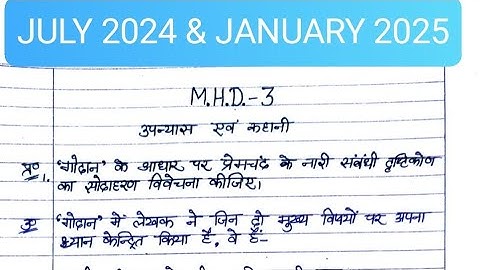 JULY 2024 & JANUARY 2025
M.H.D.-3
उपन्यास एवं कहानी
प्र०1. 'गोदान' के आधार पर प्रेमचंद के नारी संबंधी दृष्टिकोण
का सोदाहरण विवेचना कीजिए।
उ० 'गोदान' में लेखक ने जिन दो मुख्य विषयों पर अपना
ध्यान केन्द्रित किया है, वे हैं-